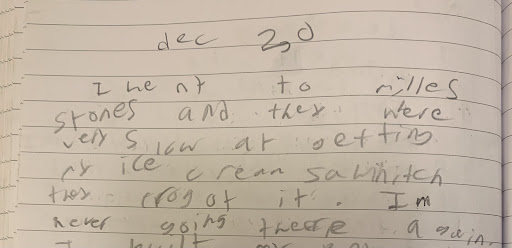 dec 20
I went to milles
stones and they were
very slow at getting
my ice crean sawhitch
they frogot it. Im
never going theere a gain.
I built